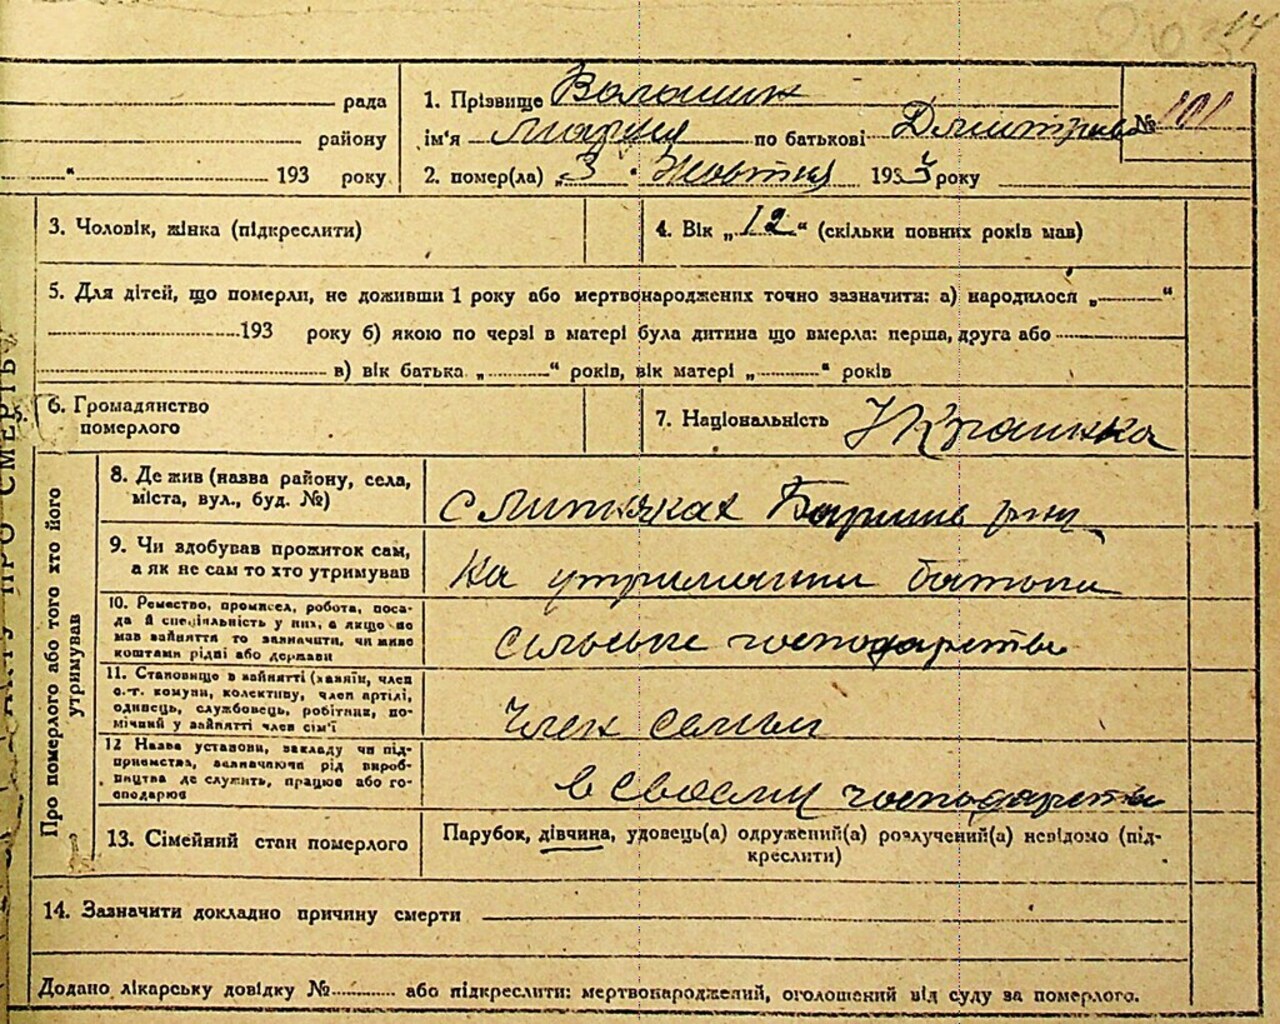 рада
району
193 року
1. Прізвище Волошин № 101
ім'я Мария по батькові Дмитров
2. помер(ла) „3" Жовтня 1933 року
3. Чоловік, жінка (підкреслити)
4. Вік „12" (скільки повних років мав)
5. Для дітей, що померли, не доживши 1 року або мертвонароджених точно зазначити: а) народилося „ "
193 року б) якою по черзі в матері була дитина що вмерла: перша, друга або
в) вік батька „ " років, вік матері „ " років
6. Громадянство
померлого
7. Національність Украинка
АКТУ ПРО СМЕРТЬ
Про померлого або того хто його
утримував
8. Де жив (назва району, села,
міста, вул., буд. №)
с Литняках Баришів
9. Чи здобував прожиток сам,
а як не сам то хто утримував
На утриманни батька
10. Ремество, промисел, робота, поса-
да й спеціяльність у них, а якщо не
мав зайняття то зазначити, чи живе
коштами рідні або держави
Сільське господарство
11. Становище в зайнятті (хазяїн, член
с.-г. комуни, колективу, член артілі,
одинець, службовець, робітник, по-
мічний у зайнятті член сім'ї
Член семьи
12 Назва установи, закладу чи під-
приємства, зазначаючи рід вироб-
ництва де служить, працює або го-
сподарює
в своєму господарстві
13. Сімейний стан померлого
Парубок, дівчина, удовець(а) одружений(а) розлучений(а) невідомо (під-
креслити)
14. Зазначити докладно причину смерти
Додано лікарську довідку № або підкреслити: мертвонароджений, оголошений від суду за померлого.